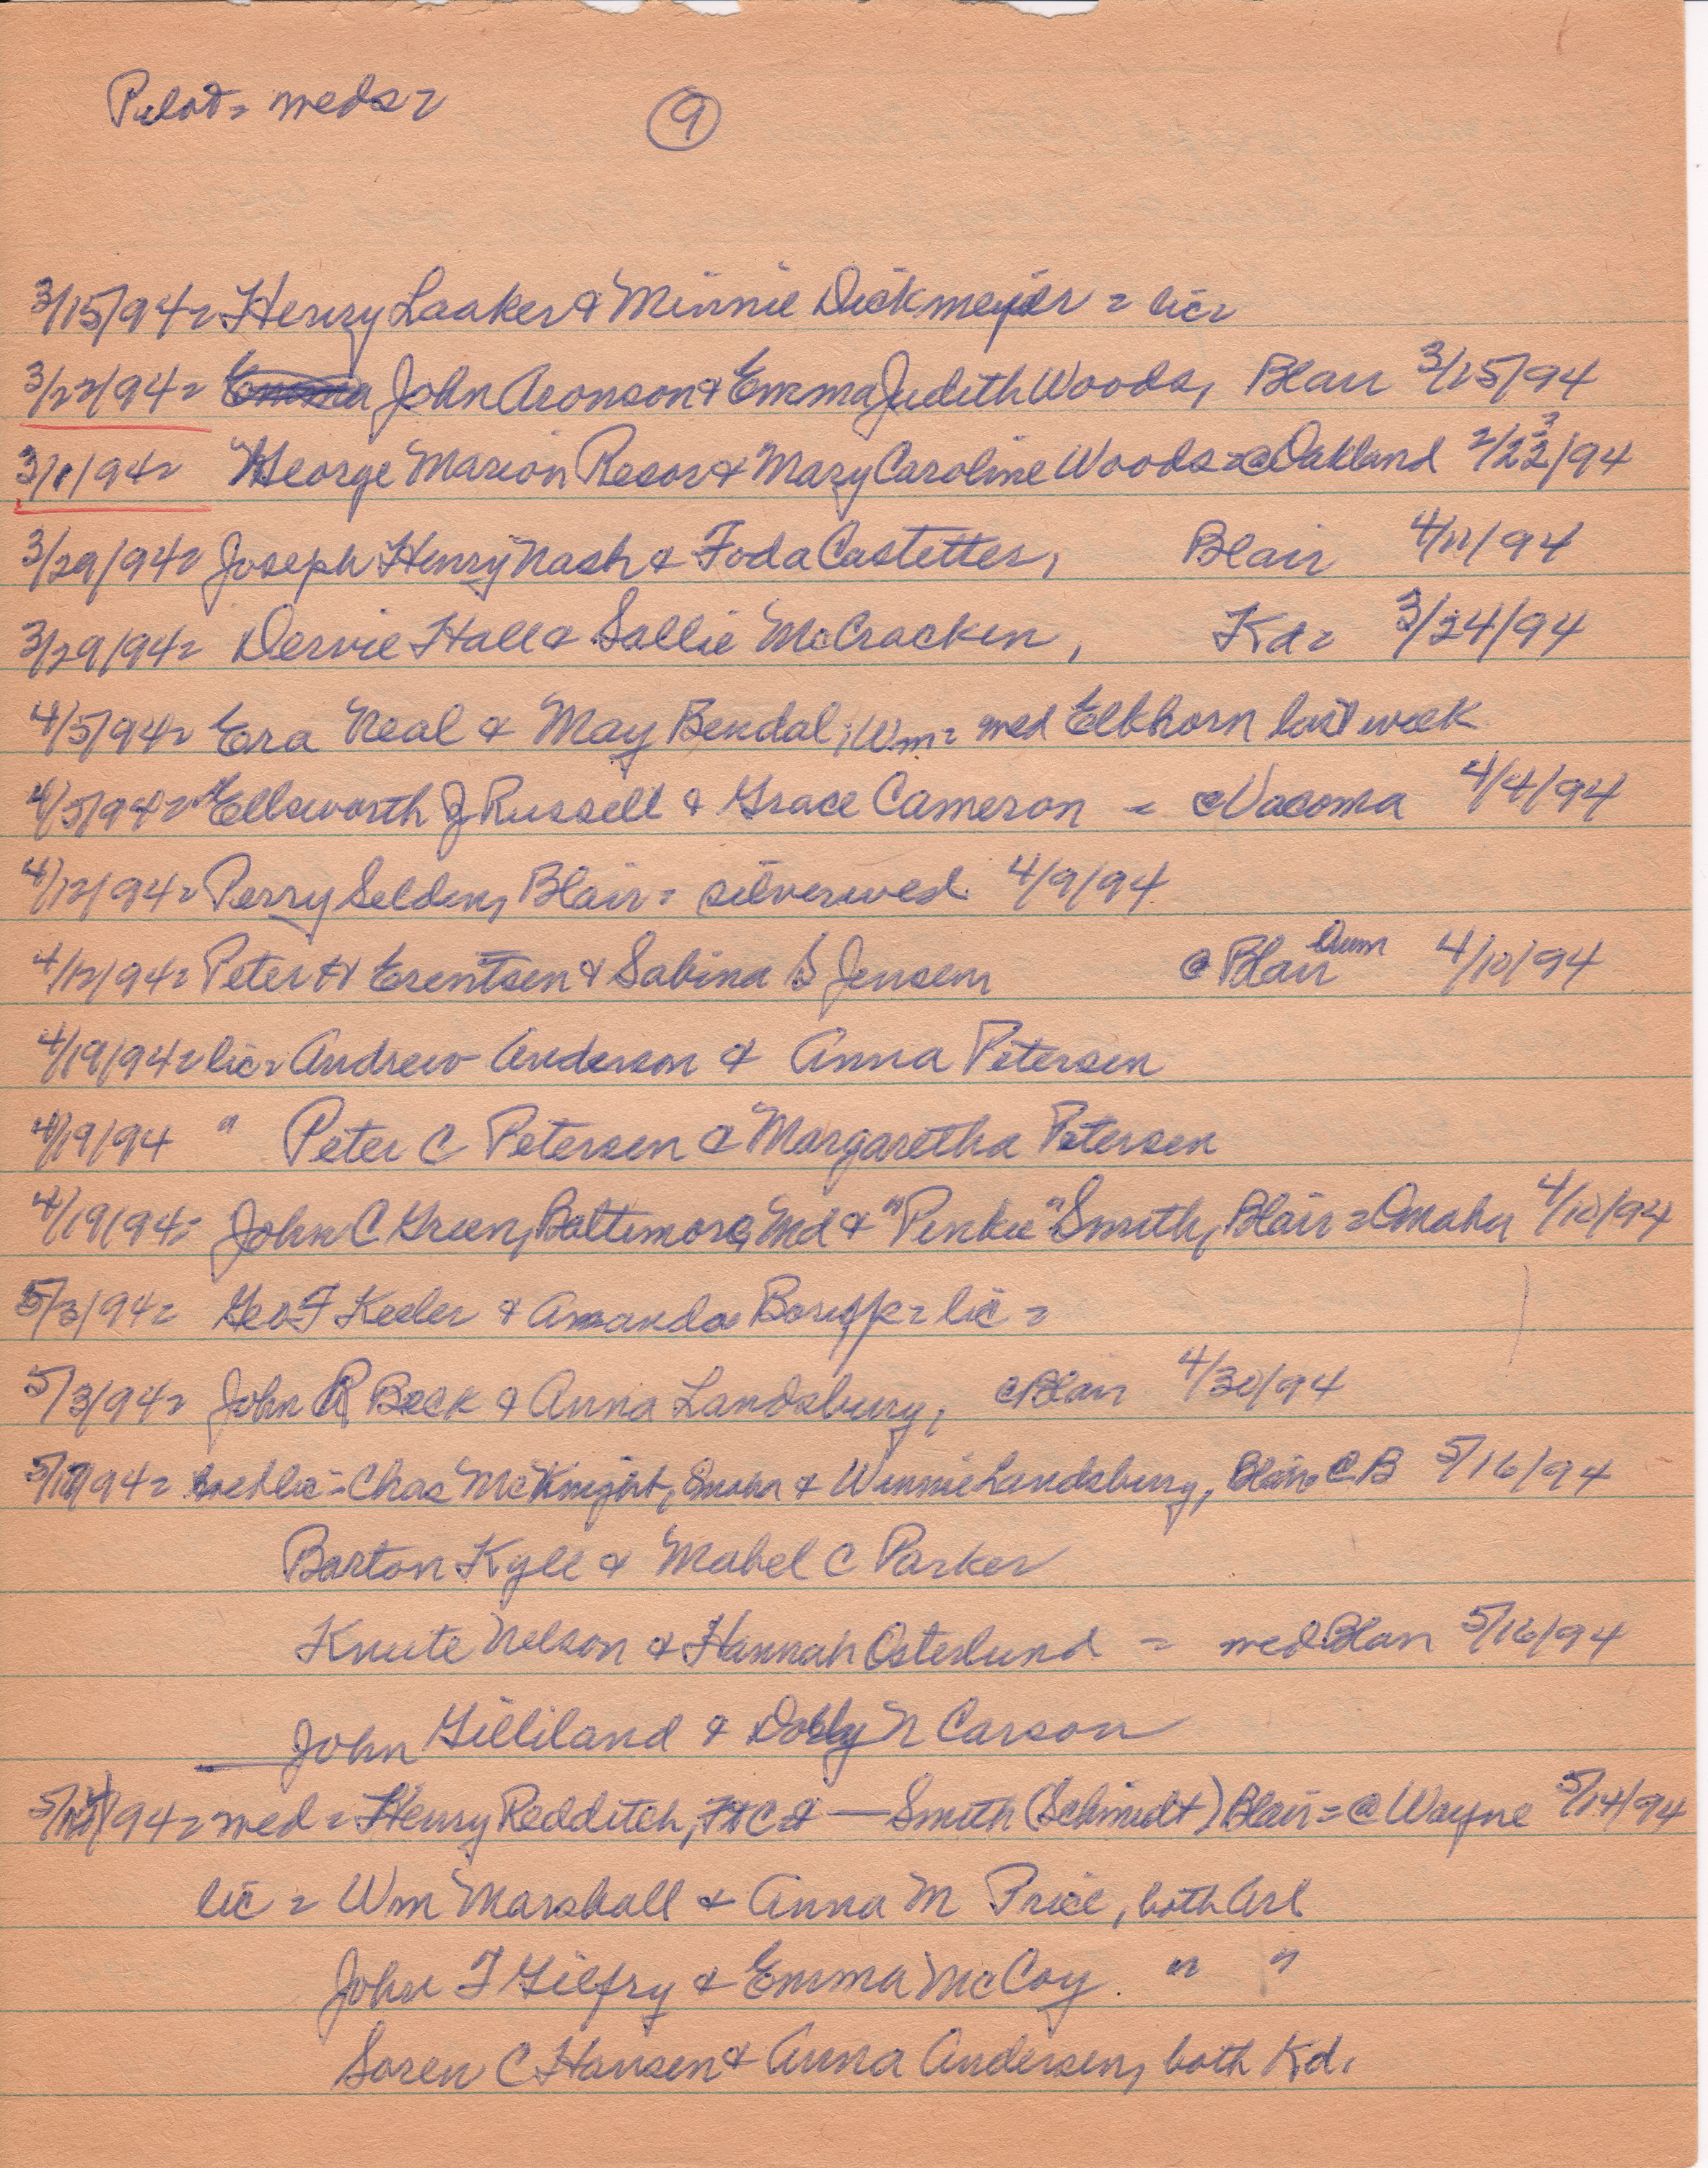 Pilot = weds =
9
3/15/94 = Henry Laaker & Minnie Dickmeyer = lic =
3/22/94 = John Aronson & Emma Judith Woods, Blair 3/25/94
3/1/94 = George Marion Resor & Mary Caroline Woods = @ Oakland 2/22/94
3/29/94 = Joseph Henry Nash & Foda Castetter, Blair 4/11/94
3/29/94 = Dervie Hall & Sallie McCracken, Kd = 3/24/94
4/5/94 = Era Neal & May Bendal, Wm = wed Elkhorn last week
4/5/94 = Ellsworth J Russell & Grace Cameron = @ Vacoma 4/4/94
4/12/94 = Perry Selden, Blair = silver wed. 4/9/94
4/12/94 = Peter H Erentsen & Sabina S Jensen @ Blair 4/10/94
4/19/94 = lic = Andrew Anderson & Anna Petersen
4/19/94 " Peter C Petersen & Margaretha Petersen
4/19/94 = John C Green, Baltimore, Md & "Pinkie" Smith, Blair = Omaha 4/10/94
5/3/94 = Geo F Keeler & Amanda = lic =
5/3/94 = John R Beck & Anna Landsburg, @ Blair 4/30/94
Chas McKnight, & Winnie Landsburg, Blair = C B 5/16/94
Barton Kyle & Mabel C Parker
Knute Nelson & Hannah Osterlund = wed Blair 5/16/94
John Gilliland & Dolly N Carson
wed = Henry Redditch, Ft C & — Smith (Schmidt) Blair = @ Wayne 5/14/94
lic = Wm Marshall & Anna M Price, both Arl
John F Gilfry & Emma McCoy. " "
Soren C Hansen & Anna Andersen, both Kd.